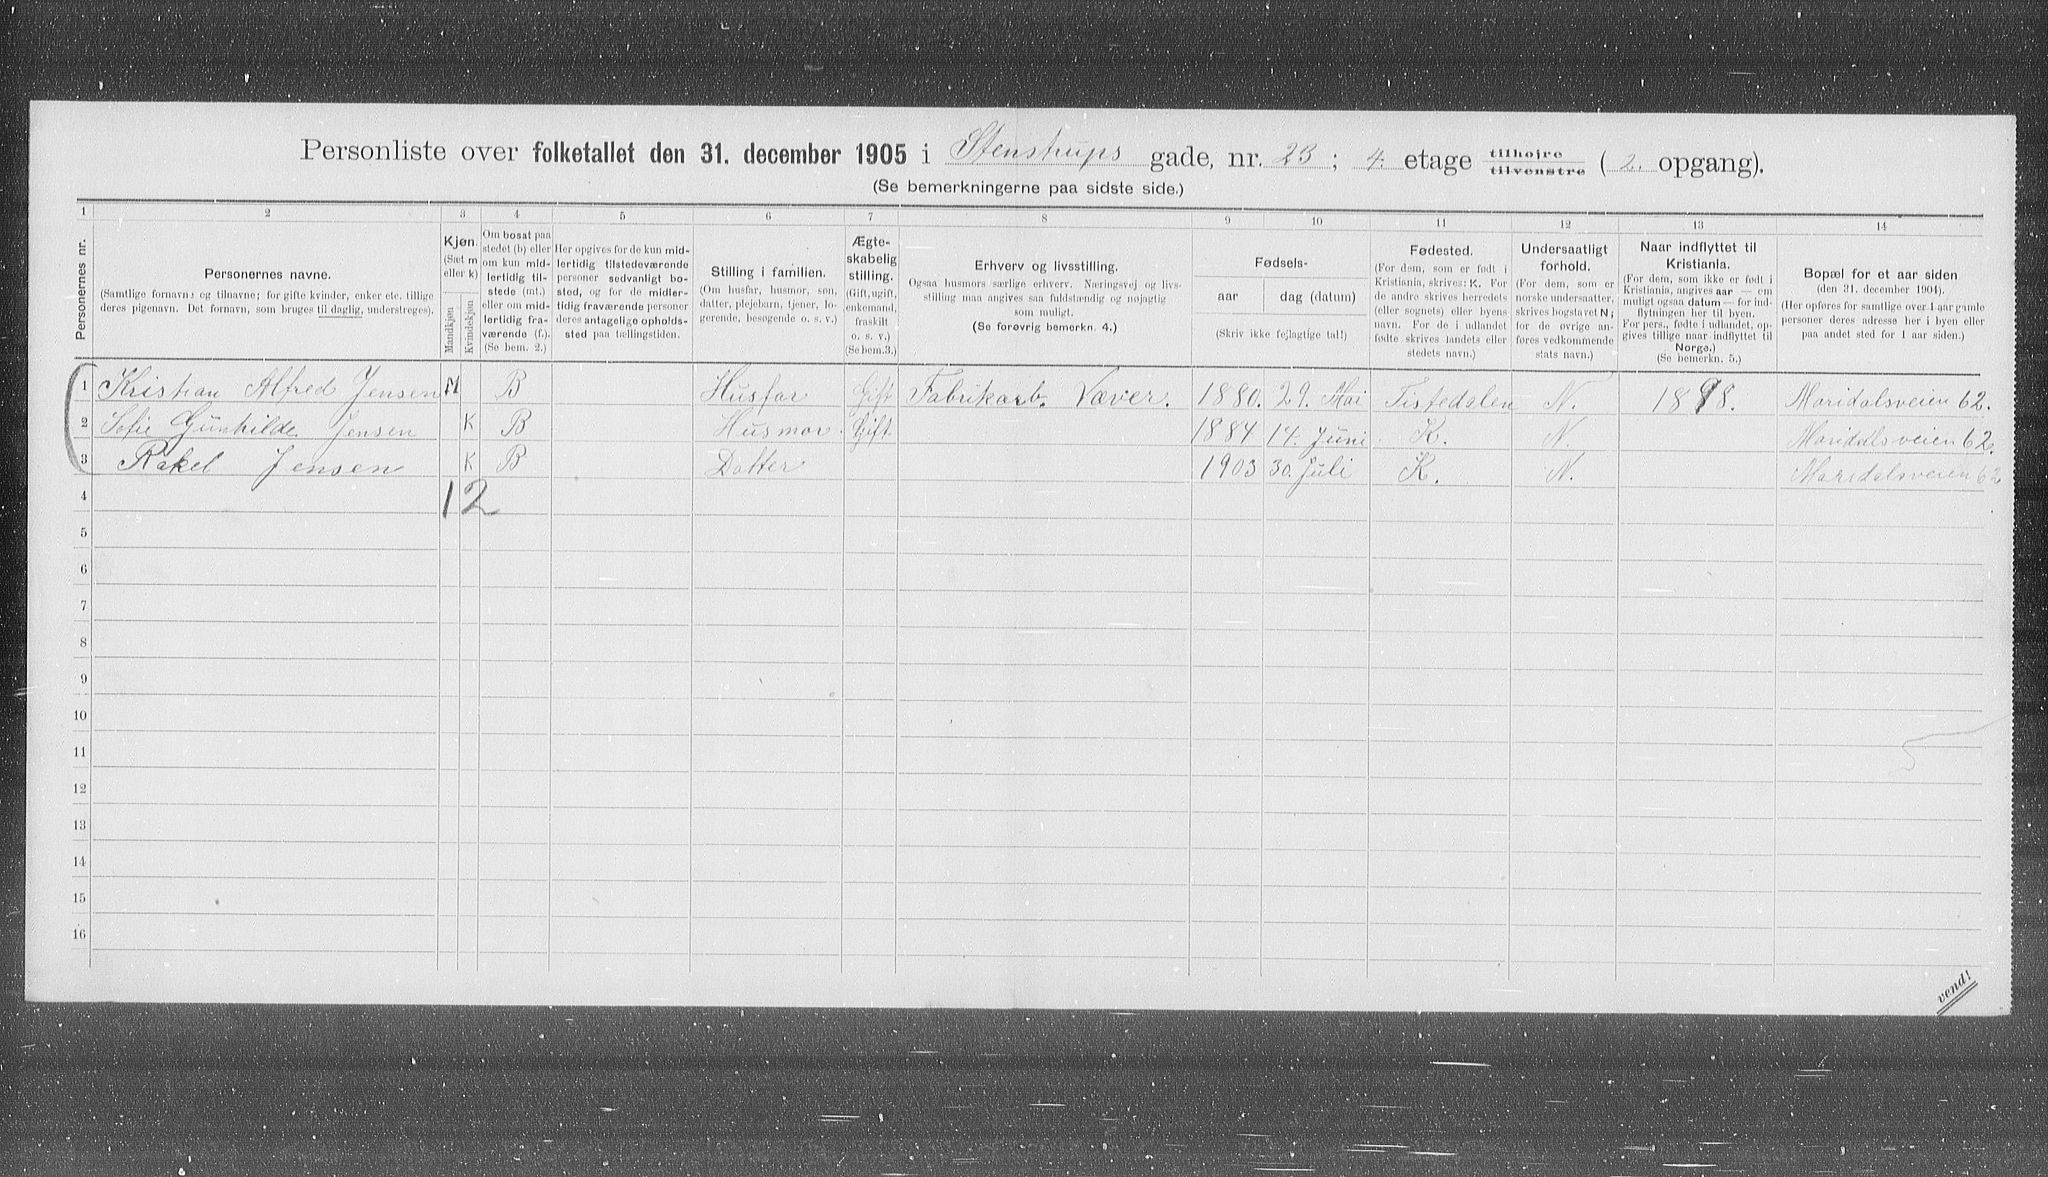 Personliste over folketallet den 31. december 1905 i Stenstrups gade, nr. 23; 4. etage tilhøire tilvenstre (2. opgang).
(Se bemerkningerne paa sidste side.)
1 2 3 4 5 6 7 8 9 10 11 12 13 14
Personernes nr.
Personernes navne.
(Samtlige fornavne og tilnavne; for gifte kvinder, enker etc. tillige deres pigenavn. Det fornavn, som bruges til daglig, understreges).
Kjøn.
(Sæt m eller k)
Mandkjøn
Kvindekjøn
Om bosat paa stedet (b) eller om kun midlertidig tilstede (mt.) eller om midlertidig fraværende (f.). (Se bem. 2.)
Her opgives for de kun midlertidig tilstedeværende personer sedvanligt bosted, og for de midlertidig fraværende personer deres antagelige opholdssted paa tællingstiden.
Stilling i familien.
(Om husfar, husmor, søn, datter, plejebarn, tjener, logerende, besøgende o. s. v.)
Ægteskabelig stilling.
(Gift, ugift, enkemand, fraskilt o. s. v.)
(Se bem. 3.)
Erhverv og livsstilling.
Ogsaa husmors særlige erhverv. Næringsvej og livsstilling maa angives saa fuldstændig og nøjagtig som muligt.
(Se forøvrig bemerkn. 4.)
Fødsels-
aar dag (datum)
(Skriv ikke fejlagtige tal!)
Fødested.
(For dem, som er født i Kristiania, skrives: K. For de andre skrives herredets (eller sognets) eller byens navn. For de i udlandet fødte skrives landets eller stedets navn.)
Undersaatligt forhold.
(For dem, som er norske undersaatter, skrives bogstavet N; for de øvrige anføres vedkommende stats navn.)
Naar indflyttet til Kristiania.
(For dem, som ikke er født i Kristiania, angives aar — om muligt ogsaa datum — for indflytningen her til byen. For pers., fødte i udlandet, opgives tillige naar indflyttet til Norge.)
(Se bemerkn. 5.)
Bopæl for et aar siden
(den 31. december 1904).
(Her opføres for samtlige over 1 aar gamle personer deres adresse her i byen eller paa andet sted for 1 aar siden.)
1 Kristian Alfred Jensen M B Husfar Gift Fabrikarb. Væver. 1880. 29. Mai Tistedalen N. 1898. Maridalsveien 62.
2 Sofie Gunhilde Jensen K B Husmor. Gift 1884 14. Juni. K. N. Maridalsveien 62.
3 Rakel Jensen K B Datter 1903 30. Juli K. N. Maridalsveien 62
4 12
5
6
7
8
9
10
11
12
13
14
15
16
vend!